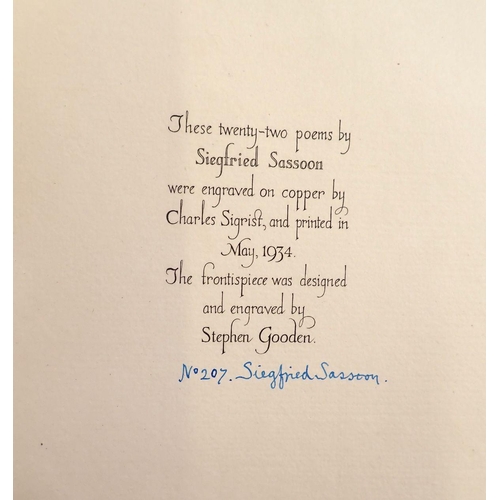 These twenty-two poems by
Siegfried Sassoon
were engraved on copper by
Charles Sigrist, and printed in
May, 1934.
The frontispiece was designed
and engraved by
Stephen Gooden.
No 207. Siegfried Sassoon.